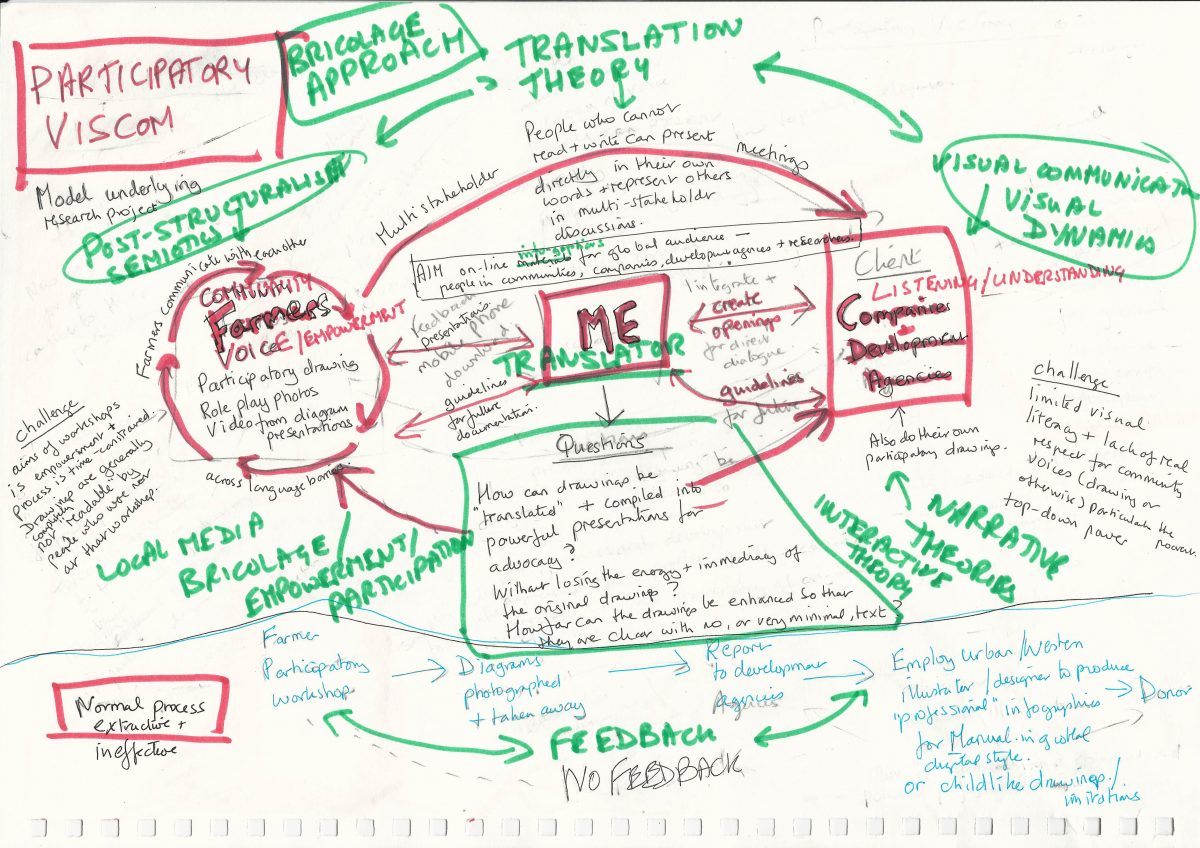 PARTICIPATORY
VISCOM
BRICOLAGE
APPROACH
TRANSLATION
THEORY
Model underlying
research project
POST-STRUCTURALISM
SEMIOTICS
VISUAL
DYNAMICS
People who cannot
read + write can present
directly in their own
words + represent others
in multi-stakeholder
discussions.
Multistakeholder
meetings
AIM on-line infographics for global audience —
people in communities, companies, development agencies + researchers.
Farmers communicate with each other
across language barriers
COMMUNITY
Farmers
VOICE/EMPOWERMENT
Participatory drawing
Role play photos
Video from diagram
presentations
feedback
presentations.
mobile phone
download
guidelines
for future
documentation.
ME
TRANSLATOR
I integrate +
create
openings
for direct
dialogue
guidelines
for future
Client
LISTENING/UNDERSTANDING
Companies
Development
Agencies
Also do their own
participatory drawings.
Challenge
aims of workshops
is empowerment +
process is time constrained
Drawings are generally
not completely
"readable" by
people who were not
at that workshop.
Challenge
limited visual
literacy + lack of real
respect for community
voices (drawing or
otherwise) particularly the
top-down power
Questions
How can drawings be
"translated" + compiled into
powerful presentations for
advocacy?
Without losing the energy + immediacy of
the original drawings?
How far can the drawings be enhanced so that
they are clear with no, or very minimal, text?
LOCAL MEDIA
BRICOLAGE
EMPOWERMENT/
PARTICIPATION
INTERACTIVE
THEORY
NARRATIVE
THEORIES
Normal process
extractive +
ineffective
Farmer
Participatory
workshop
Diagrams
photographed
+ taken away
Report
to development
Agencies
Employ urban/Western
illustrator/designer to produce
"professional" infographics
for Manual in global
digital style.
or childlike drawings/
imitations
Donor
FEEDBACK
NO FEEDBACK